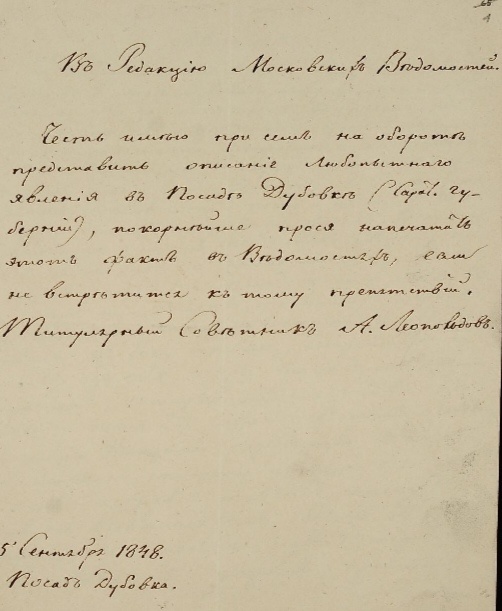 65
4
Въ Редакцію Московскихъ Вѣдомостей.
Честь имѣю при семъ на оборотѣ
представить описаніе любопытнаго
явленія въ Посадѣ Дубовкѣ (Сарат. гу-
берніи), покорнѣйше прося напечатать
этотъ фактъ въ Вѣдомостяхъ, если
не встрѣтится къ тому препятствій.
Титулярный Совѣтникъ А. Леопольдовъ.
5 Сентября 1848.
Посадъ Дубовка.